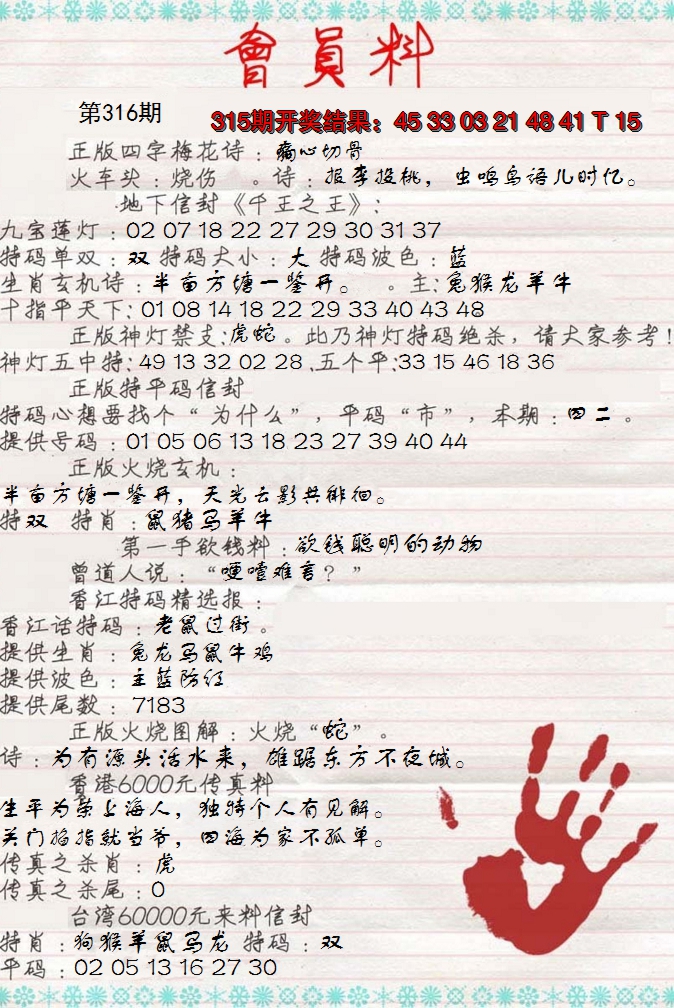 會員料
第316期
315期开奖结果：45 33 03 21 48 41 T 15
正版四字梅花诗：痛心切骨
火车头：烧伤 。诗：报李投桃，虫鸣鸟语儿时忆。
地下信封《千王之王》：
九宝莲灯：02 07 18 22 27 29 30 31 37
特码单双：双 特码大小：大 特码波色：蓝
生肖玄机诗：半亩方塘一鉴开。 。主：兔猴龙羊牛
十指平天下：01 08 14 18 22 29 33 40 43 48
正版神灯禁支：虎蛇。此乃神灯特码绝杀，请大家参考！
神灯五中特：49 13 32 02 28 .五个平：33 15 46 18 36
正版特平码信封
特码心想要找个“为什么”，平码“市”，本期：四二。
提供号码：01 05 06 13 18 23 27 39 40 44
正版火烧玄机：
半亩方塘一鉴开，天光云影共徘徊。
特双 特肖：鼠猪马羊牛
第一手欲钱料：欲钱聪明的动物
曾道人说：“哽噎难言？”
香江特码精选报：
香江话特码：老鼠过街。
提供生肖：兔龙马鼠牛鸡
提供波色：主蓝防红
提供尾数：7183
正版火烧图解：火烧“蛇”。
诗：为有源头活水来，雄踞东方不夜城。
香港6000元传真料
生平为荣上海人，独特个人有见解。
关门掐指就当爷，四海为家不孤单。
传真之杀肖：虎
传真之杀尾：0
台湾60000元来料信封
特肖：狗猴羊鼠马龙 特码：双
平码：02 05 13 16 27 30